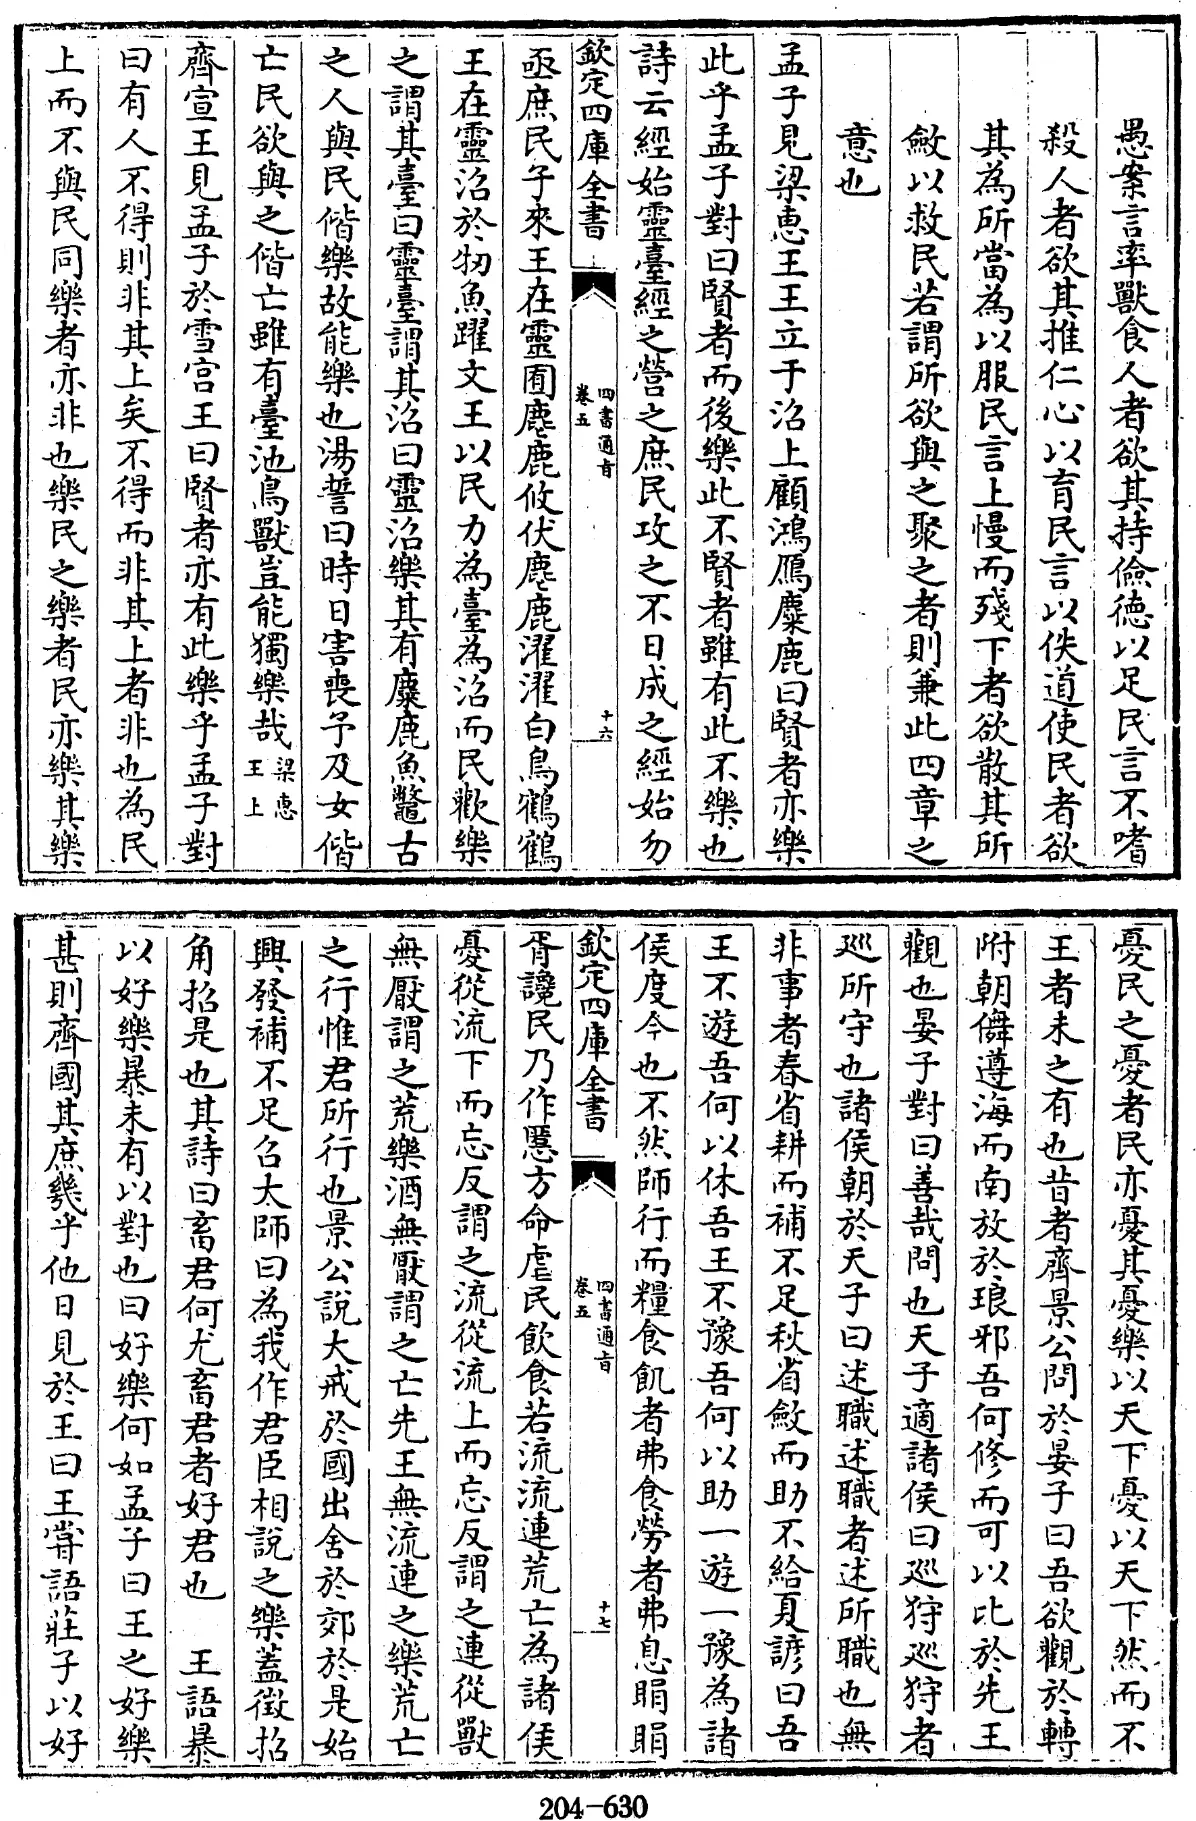 愚案言率獸食人者欲其持儉德以足民言不嗜
殺人者欲其推仁心以育民言以佚道使民者欲
其為所當為以服民言上慢而殘下者欲散其所
斂以救民若謂所欲與之聚之者則兼此四章之
意也
孟子見梁惠王王立于沼上顧鴻鴈麋鹿曰賢者亦樂
此乎孟子對曰賢者而後樂此不賢者雖有此不樂也
詩云經始靈臺經之營之庶民攻之不日成之經始勿
欽定四庫全書
四書通旨
卷五
十六
亟庶民子來王在靈囿麀鹿攸伏麀鹿濯濯白鳥鶴鶴
王在靈沼於牣魚躍文王以民力為臺為沼而民歡樂
之謂其臺曰靈臺謂其沼曰靈沼樂其有麋鹿魚鼈古
之人與民偕樂故能樂也湯誓曰時日害喪予及女偕
亡民欲與之偕亡雖有臺池鳥獸豈能獨樂哉梁惠王上
齊宣王見孟子於雪宮王曰賢者亦有此樂乎孟子對
曰有人不得則非其上矣不得而非其上者非也為民
上而不與民同樂者亦非也樂民之樂者民亦樂其樂
憂民之憂者民亦憂其憂樂以天下憂以天下然而不
王者未之有也昔者齊景公問於晏子曰吾欲觀於轉
附朝儛遵海而南放於琅邪吾何修而可以比於先王
觀也晏子對曰善哉問也天子適諸侯曰巡狩巡狩者
巡所守也諸侯朝於天子曰述職述職者述所職也無
非事者春省耕而補不足秋省斂而助不給夏諺曰吾
王不遊吾何以休吾王不豫吾何以助一遊一豫為諸
侯度今也不然師行而糧食飢者弗食勞者弗息睊睊
欽定四庫全書
四書通旨
卷五
十七
胥讒民乃作慝方命虐民飲食若流流連荒亡為諸侯
憂從流下而忘反謂之流從流上而忘反謂之連從獸
無厭謂之荒樂酒無厭謂之亡先王無流連之樂荒亡
之行惟君所行也景公說大戒於國出舍於郊於是始
興發補不足召太師曰為我作君臣相說之樂蓋徵招
角招是也其詩曰畜君何尤畜君者好君也　王語暴
以好樂暴未有以對也曰好樂何如孟子曰王之好樂
甚則齊國其庶幾乎他日見於王曰王嘗語莊子以好
204-630